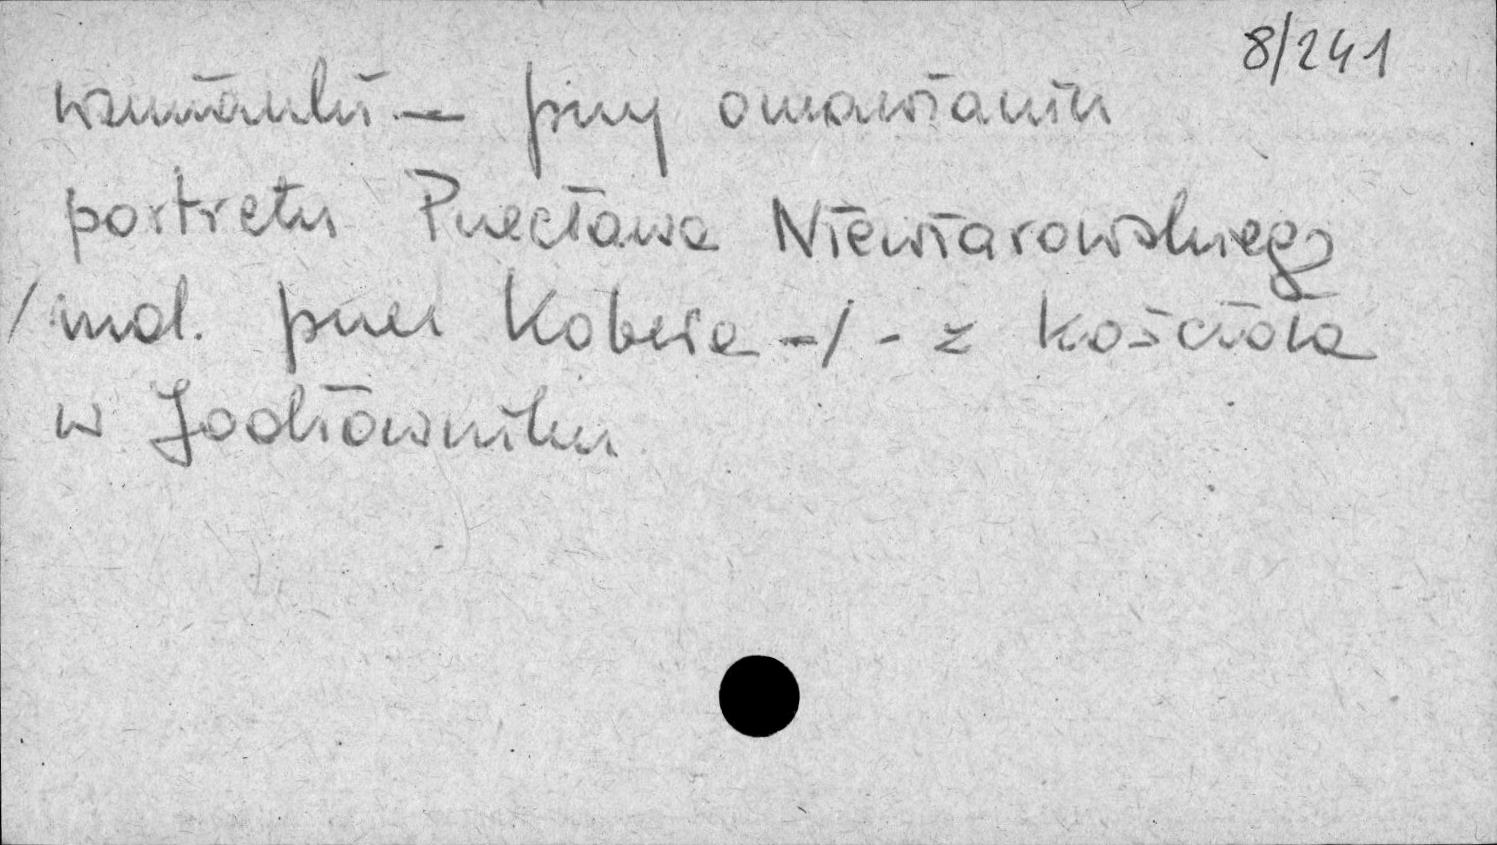 8/241
wzmianki — przy omawianiu
portretu Przecława Niewiarowskiego
/mal. przez Kobera -/ - z kościoła
w Jodłowniku